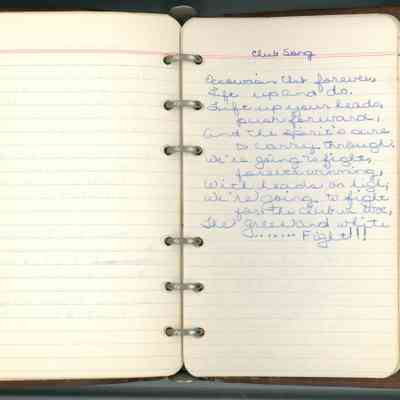 Club Song
forever,
Life up and do.
Lift up your heads,
push forward,
And the spirit's ours
to carry through.
We're going to fight,
forever winning,
With heads on high,
We're going to fight
for the club we love,
The green and white
....... Fight!!!